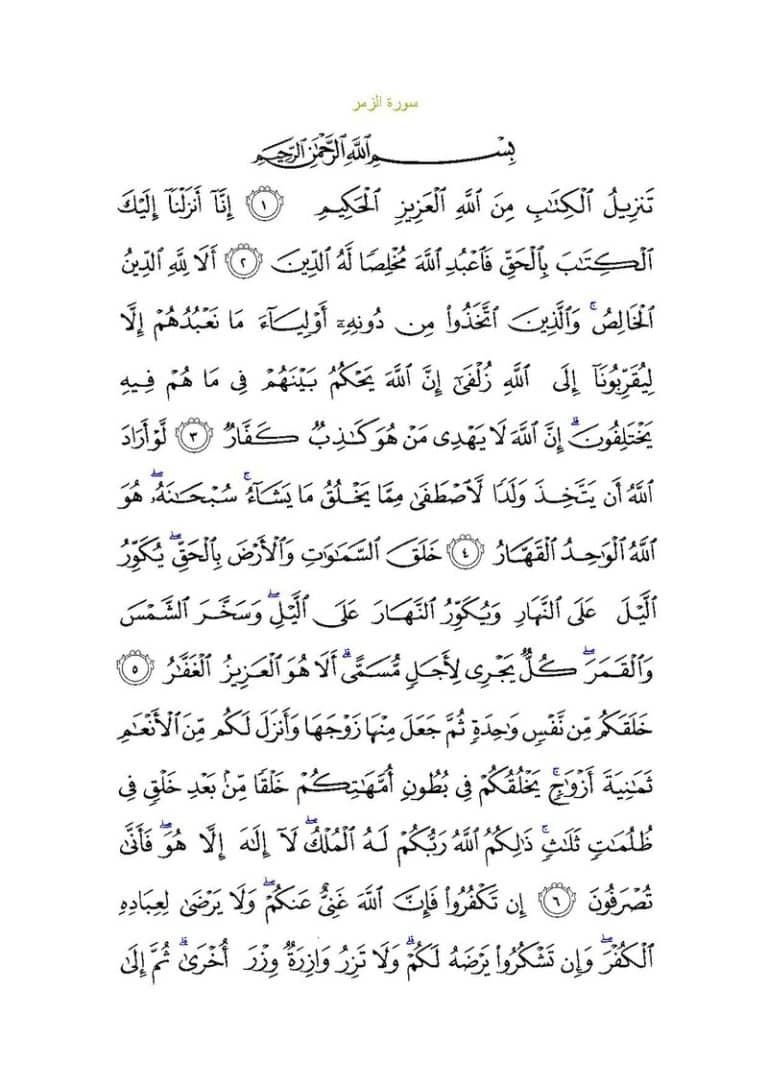 سورة الزمر
بِسْمِ ٱللَّهِ ٱلرَّحْمَٰنِ ٱلرَّحِيمِ
تَنزِيلُ ٱلْكِتَٰبِ مِنَ ٱللَّهِ ٱلْعَزِيزِ ٱلْحَكِيمِ ١ إِنَّآ أَنزَلْنَآ إِلَيْكَ
ٱلْكِتَٰبَ بِٱلْحَقِّ فَٱعْبُدِ ٱللَّهَ مُخْلِصًا لَّهُ ٱلدِّينَ ٢ أَلَا لِلَّهِ ٱلدِّينُ
ٱلْخَالِصُ ۚ وَٱلَّذِينَ ٱتَّخَذُوا۟ مِن دُونِهِۦٓ أَوْلِيَآءَ مَا نَعْبُدُهُمْ إِلَّا
لِيُقَرِّبُونَآ إِلَى ٱللَّهِ زُلْفَىٰٓ إِنَّ ٱللَّهَ يَحْكُمُ بَيْنَهُمْ فِى مَا هُمْ فِيهِ
يَخْتَلِفُونَ ۗ إِنَّ ٱللَّهَ لَا يَهْدِى مَنْ هُوَ كَٰذِبٌ كَفَّارٌ ٣ لَّوْ أَرَادَ
ٱللَّهُ أَن يَتَّخِذَ وَلَدًا لَّٱصْطَفَىٰ مِمَّا يَخْلُقُ مَا يَشَآءُ ۚ سُبْحَٰنَهُۥ ۖ هُوَ
ٱللَّهُ ٱلْوَٰحِدُ ٱلْقَهَّارُ ٤ خَلَقَ ٱلسَّمَٰوَٰتِ وَٱلْأَرْضَ بِٱلْحَقِّ ۖ يُكَوِّرُ
ٱلَّيْلَ عَلَى ٱلنَّهَارِ وَيُكَوِّرُ ٱلنَّهَارَ عَلَى ٱلَّيْلِ ۖ وَسَخَّرَ ٱلشَّمْسَ
وَٱلْقَمَرَ ۖ كُلٌّ يَجْرِى لِأَجَلٍ مُّسَمًّى ۗ أَلَا هُوَ ٱلْعَزِيزُ ٱلْغَفَّٰرُ ٥
خَلَقَكُم مِّن نَّفْسٍ وَٰحِدَةٍ ثُمَّ جَعَلَ مِنْهَا زَوْجَهَا وَأَنزَلَ لَكُم مِّنَ ٱلْأَنْعَٰمِ
ثَمَٰنِيَةَ أَزْوَٰجٍ ۚ يَخْلُقُكُمْ فِى بُطُونِ أُمَّهَٰتِكُمْ خَلْقًا مِّنۢ بَعْدِ خَلْقٍ فِى
ظُلُمَٰتٍ ثَلَٰثٍ ۚ ذَٰلِكُمُ ٱللَّهُ رَبُّكُمْ لَهُ ٱلْمُلْكُ ۖ لَآ إِلَٰهَ إِلَّا هُوَ ۖ فَأَنَّىٰ
تُصْرَفُونَ ٦ إِن تَكْفُرُوا۟ فَإِنَّ ٱللَّهَ غَنِىٌّ عَنكُمْ ۖ وَلَا يَرْضَىٰ لِعِبَادِهِ
ٱلْكُفْرَ ۖ وَإِن تَشْكُرُوا۟ يَرْضَهُ لَكُمْ ۗ وَلَا تَزِرُ وَازِرَةٌ وِزْرَ أُخْرَىٰ ۗ ثُمَّ إِلَىٰ